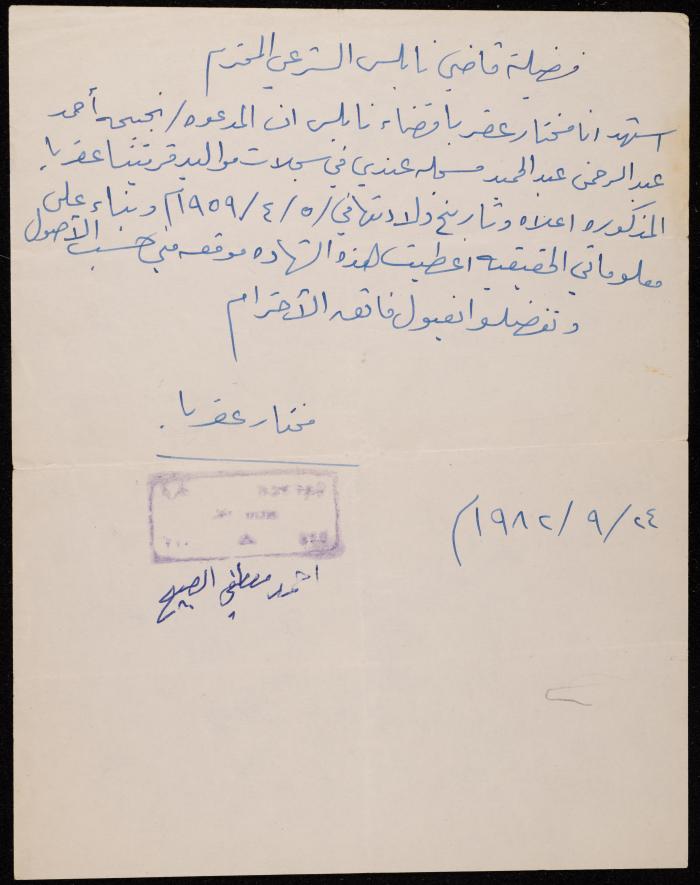 فضيلة قاضي نابلس الشرعي المحترم
اشهد انا مختار عقربا قضاء نابلس ان المدعوه / نجيحه أحمد
عبد الرحمن عبد الحميد مسجله عندي في سجلات مواليد قريتنا عقربا
المذكوره اعلاه وتاريخ ولادتها في ٥/٤/١٩٥٩م وبناء على
معلوماتي الحقيقيه اعطيت هذه الشهاده موقعه مني حسب الأصول
وتفضلوا بقبول فائق الاحترام
مختار عقربا.
٢٤/٩/١٩٨٢م
احمد مصطفى